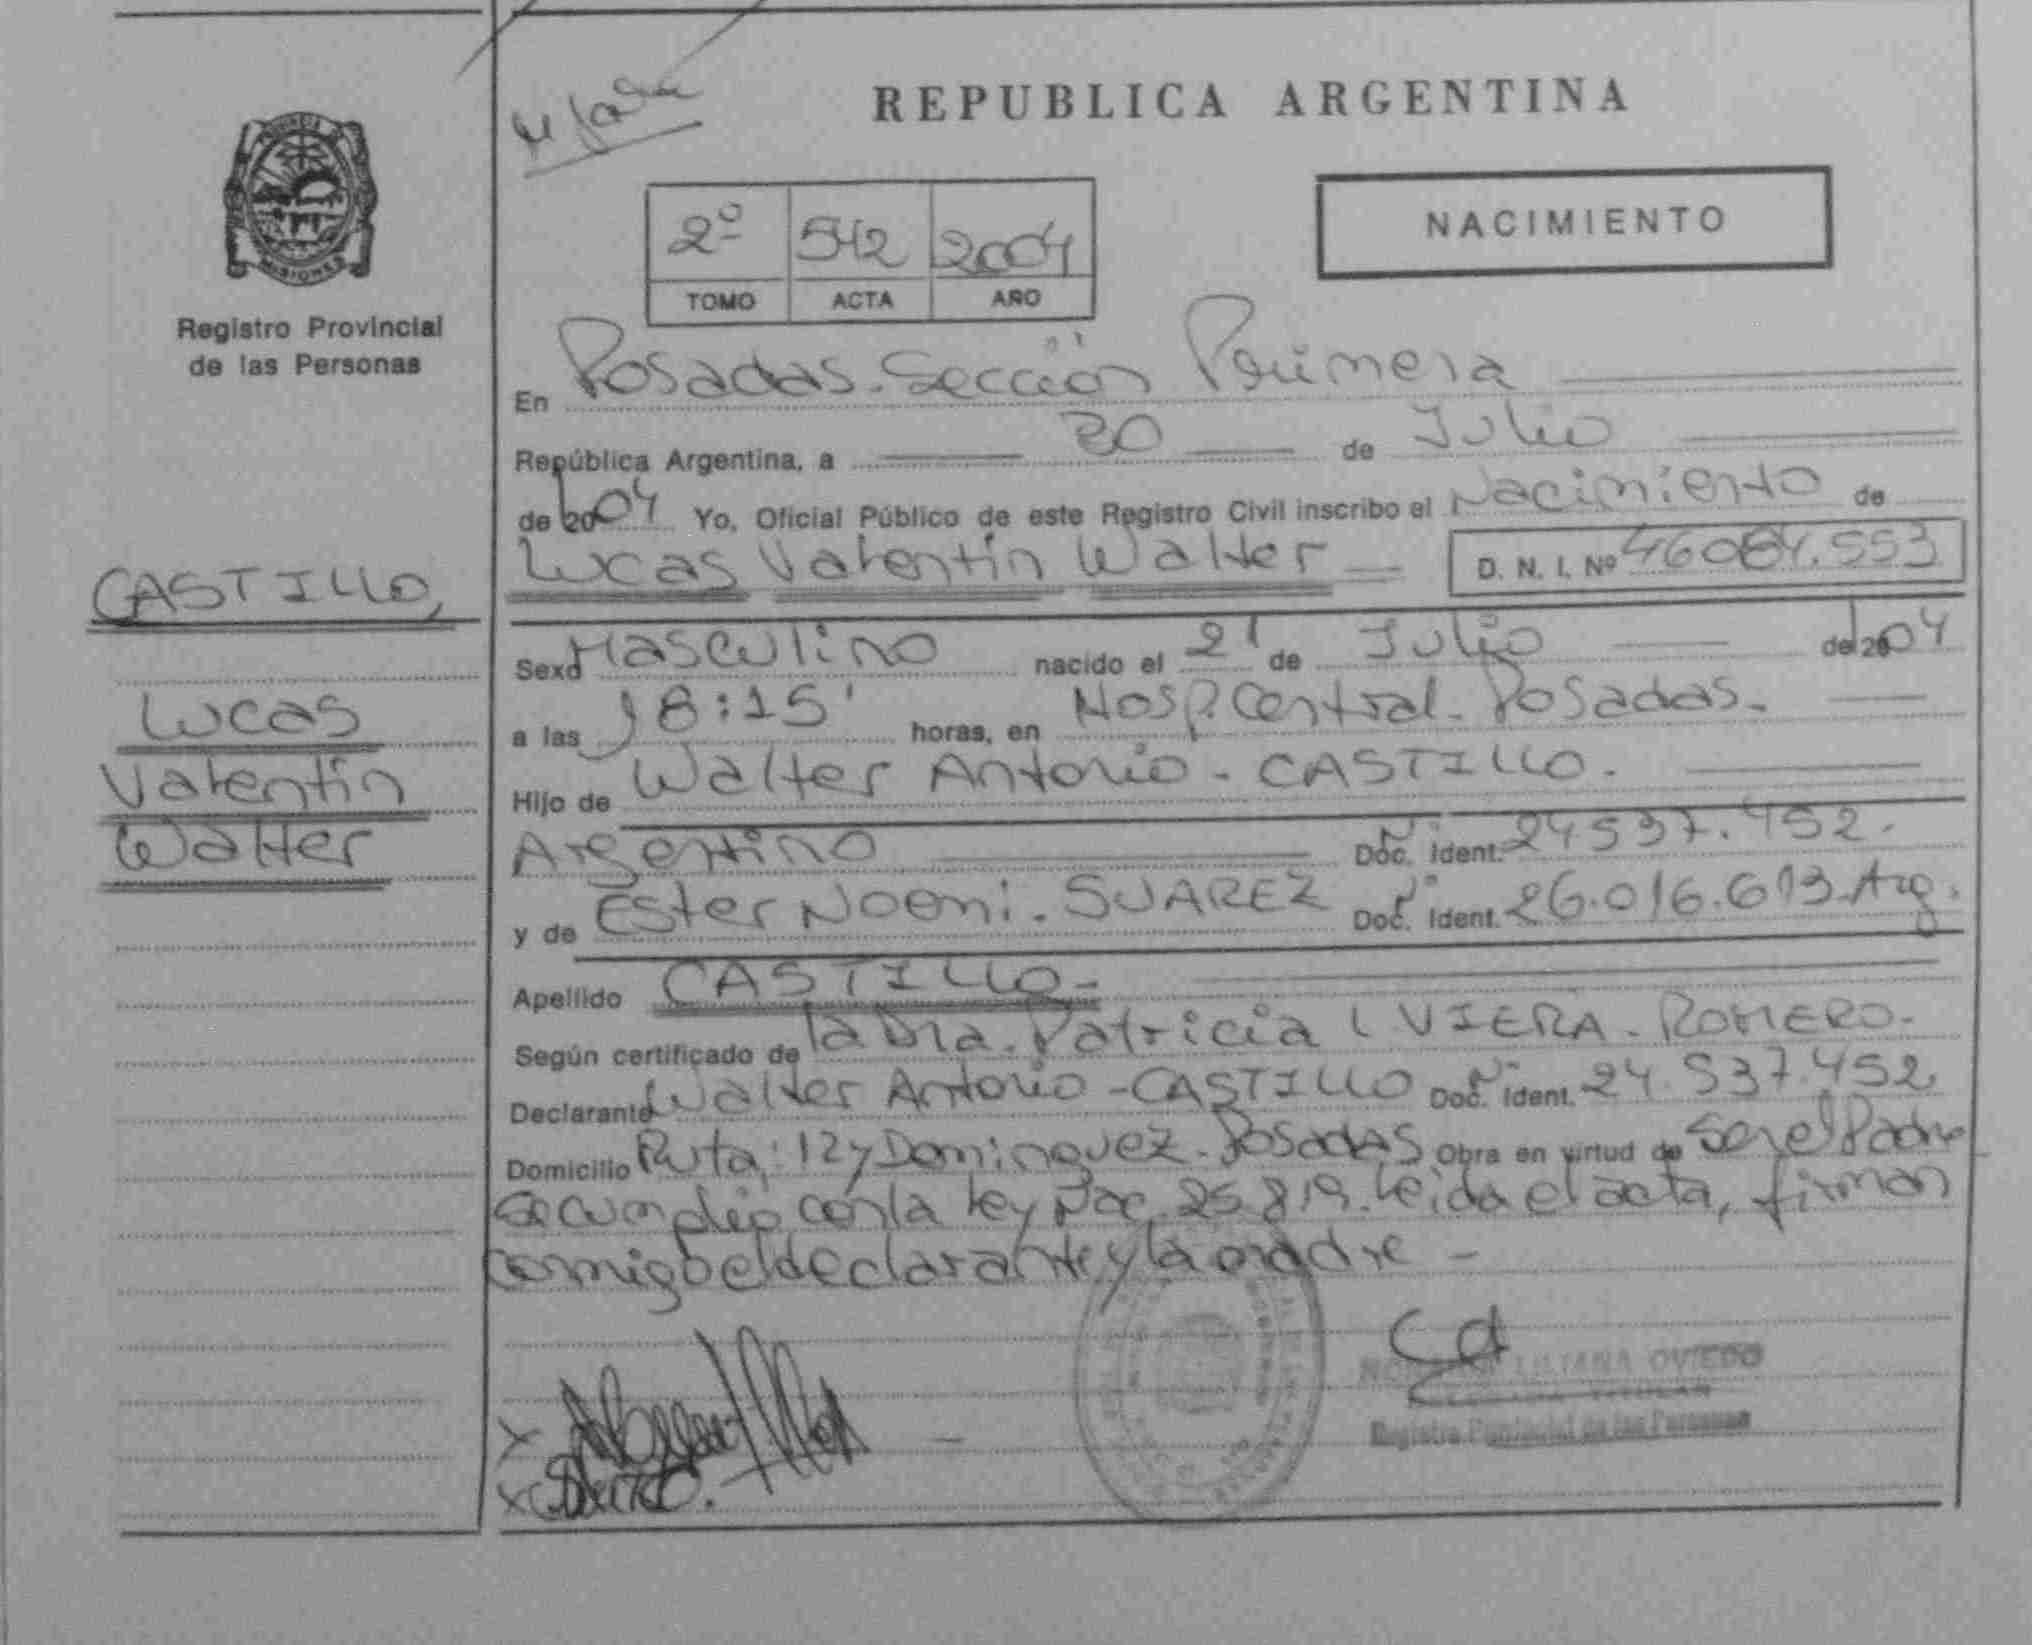 REPUBLICA ARGENTINA
NACIMIENTO
2º 542 2004
TOMO ACTA AÑO
PROVINCIA DE MISIONES
Registro Provincial
de las Personas
En Posadas. Sección Primera
República Argentina, a 20 de Julio
de 2004 Yo, Oficial Público de este Registro Civil inscribo el Nacimiento de
Lucas Valentin Walter D. N. I. Nº 46084.553
CASTILLO,
Lucas
Valentin
Walter
Sexo Masculino nacido el 2 de Julio de 2004
a las 18:15' horas, en Hosp. Central. Posadas.
Hijo de Walter Antonio - CASTILLO.
Argentino Doc. Ident. 24537.452.
y de Ester Noemi. SUAREZ Doc. Ident. 26.016.613. Arg.
Apellido CASTILLO.
Según certificado de la Dra. Patricia L VIERA. ROMERO.
Declarante Walter Antonio - CASTILLO Doc. Ident. 24.537.452.
Domicilio Ruta: 12 y Dominguez. Posadas Obra en virtud de Ser el Padre
Se cumplió con la Ley Nac. 25.819. Leida el acta, firman
conmigo el declarante y la madre -
LILIANA OVIEDO
TITULAR
Registro Provincial de las Personas